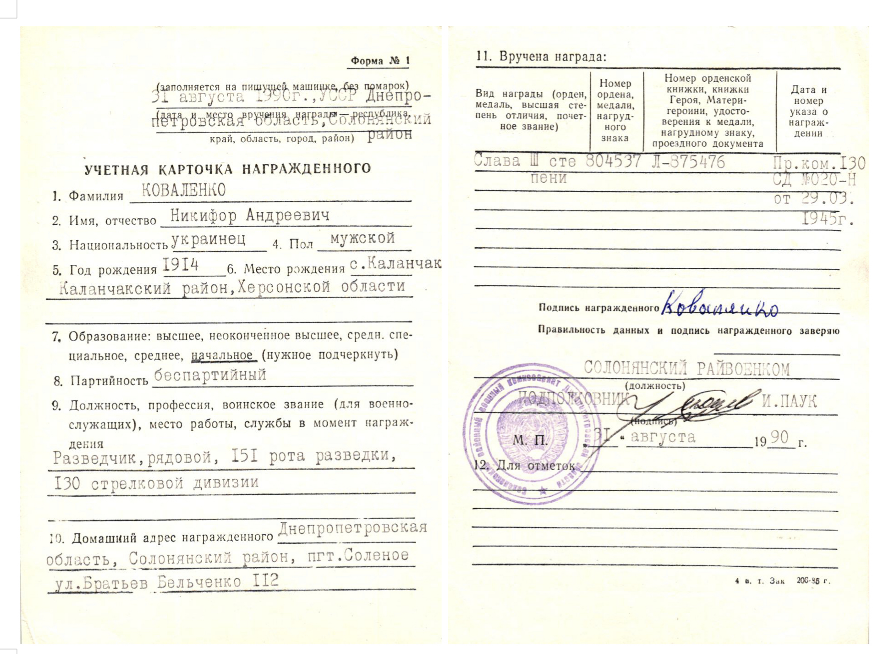 Форма № 1
(заполняется на пишущей машинке, без помарок)
31 августа 1990г.,УССР Днепро-
(дата и место вручения награды — республика,
петровская область,Солонянский
край, область, город, район) район
УЧЕТНАЯ КАРТОЧКА НАГРАЖДЕННОГО
1. Фамилия КОВАЛЕНКО
2. Имя, отчество Никифор Андреевич
3. Национальность украинец 4. Пол мужской
5. Год рождения 1914 6. Место рождения с.Каланчак
Каланчакский район,Херсонской области
7. Образование: высшее, неоконченное высшее, средн. спе-
циальное, среднее, начальное (нужное подчеркнуть)
8. Партийность беспартийный
9. Должность, профессия, воинское звание (для военно-
служащих), место работы, службы в момент награж-
дения
Разведчик,рядовой, 151 рота разведки,
130 стрелковой дивизии
10. Домашний адрес награжденного Днепропетровская
область, Солонянский район, пгт.Соленое
ул.Братьев Бельченко 112
11. Вручена награда:
Вид награды (орден, медаль, высшая сте-пень отличия, почет-ное звание)
Номер ордена, медали, нагруд-ного знака
Номер орденской книжки, книжки Героя, Матери-героини, удосто-верения к медали, нагрудному знаку, проездного документа
Дата и номер указа о награж-дении
Слава Ш сте 804537 Л-875476 Пр.ком.130
пени СД №020-Н
от 29.03.
1945г.
Подпись награжденного Коваленко
Правильность данных и подпись награжденного заверяю
СОЛОНЯНСКИЙ РАЙВОЕНКОМ
(должность)
ПОДПОЛКОВНИК И.ПАУК
(подпись)
М. П. „31 “ августа 1990 г.
12. Для отметок
4 в. т. Зак 206-86 г.